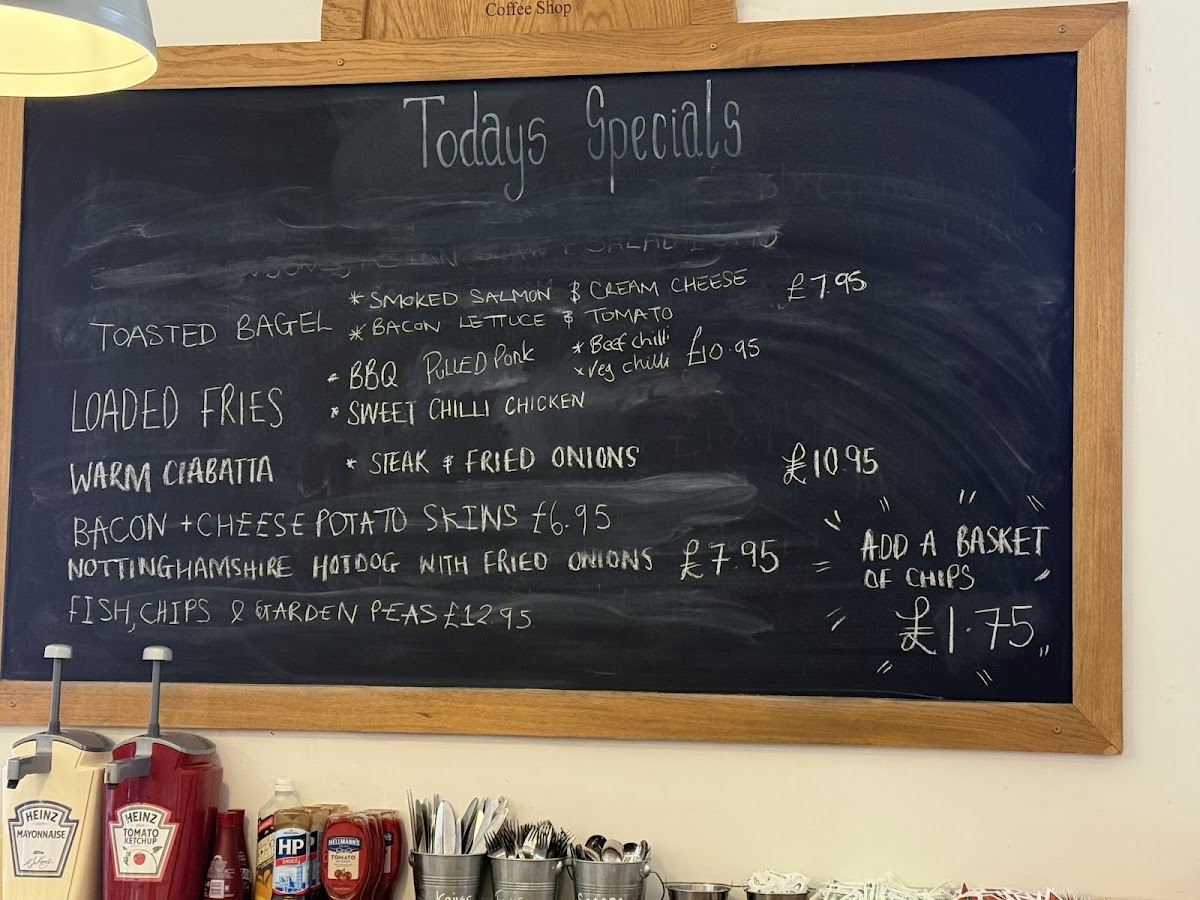 Coffee Shop
Todays Specials
SALAD
TOASTED BAGEL
* SMOKED SALMON & CREAM CHEESE £7.95
* BACON LETTUCE & TOMATO
LOADED FRIES
* BBQ PULLED PORK
* Beef chilli
* Veg chilli
£10.95
* SWEET CHILLI CHICKEN
WARM CIABATTA * STEAK & FRIED ONIONS £10.95
BACON + CHEESE POTATO SKINS £6.95
NOTTINGHAMSHIRE HOTDOG WITH FRIED ONIONS £7.95
FISH, CHIPS & GARDEN PEAS £12.95
ADD A BASKET
OF CHIPS
£1.75
HEINZ
MAYONNAISE
HEINZ
TOMATO
KETCHUP
HP
SAUCE
HELLMANN'S
TOMATO